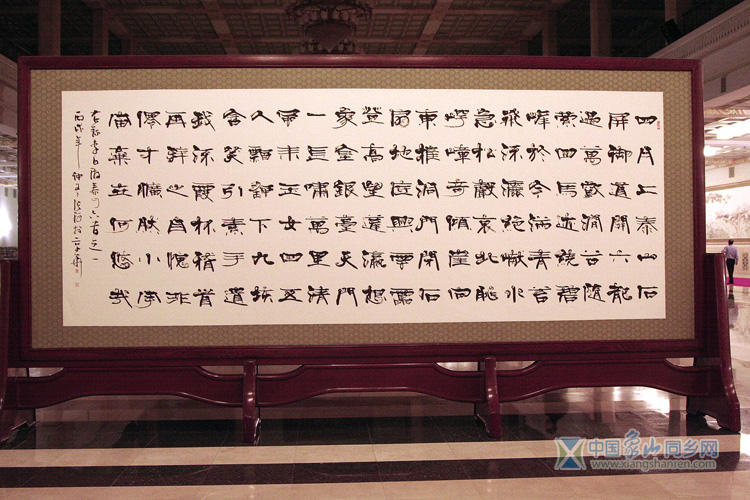 四月上泰山石
屏御道開六龍
過萬壑澗谷隨
縈回馬跡繞碧
峰於今滿青苔
飛流灑絕巘水
急松聲哀北眺
崿嶂奇傾崖向
東摧洞門閉石
扇地底興雲雷
登高望蓬瀛想
象金銀臺天門
一長嘯萬里清
風來玉女四五
人飄颻下九垓
含笑引素手遺
我流霞杯稽首
再拜之自愧非
僊才曠然小宇
宙棄世何悠哉
右錄李白游泰山六首之一
丙戌年仲夏
中国象山同乡网
www.xiangshanren.com